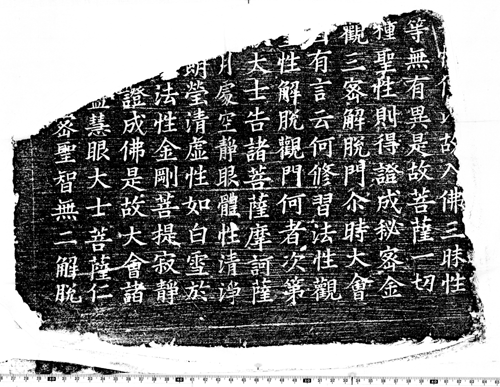 故入佛三昧性
等無有異是故菩薩一切
種聖性則得證成秘密金
觀三密解脫門尒時大會
有言云何修習法性觀
性解脫觀門何者次第
大士告諸菩薩摩訶薩
月處空靜眼體性清淨
朗瑩清虛性如白雪於
法性金剛菩提寂靜
證成佛是故大會諸
慧眼大士菩薩仁
密聖智無二解脫